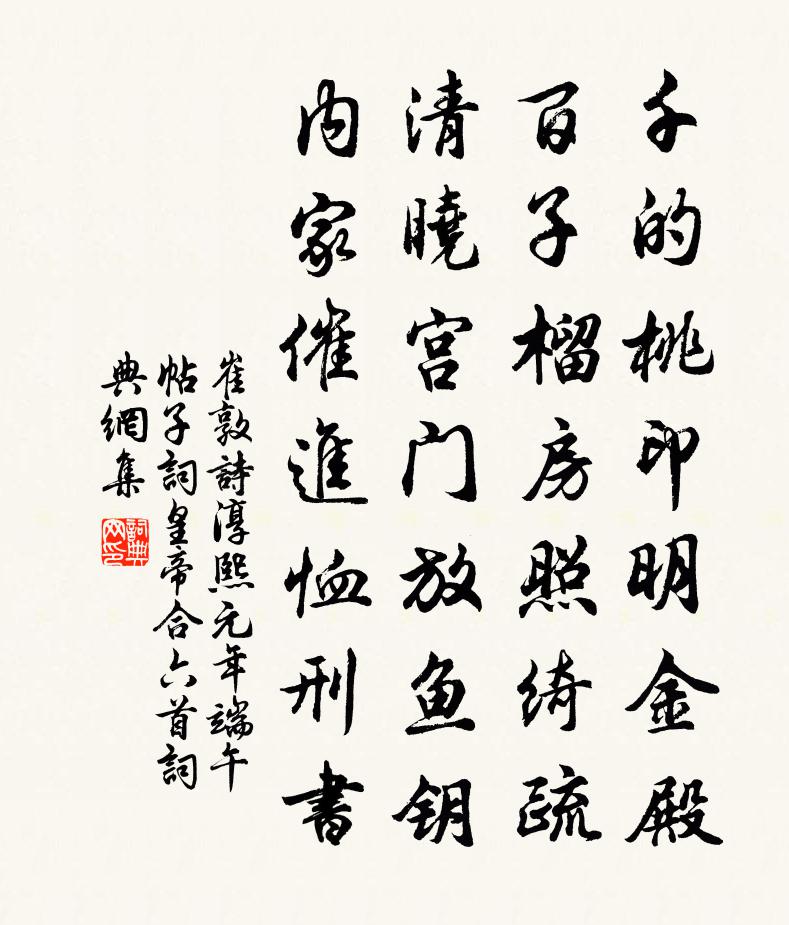 千的桃印明金殿
百子榴房照绮疏
清曉宫门放鱼钥
内家催進恤刑書
崔敦詩淳熙元年端午
帖子詞皇帝合六首詞
典網集
詞典
网印